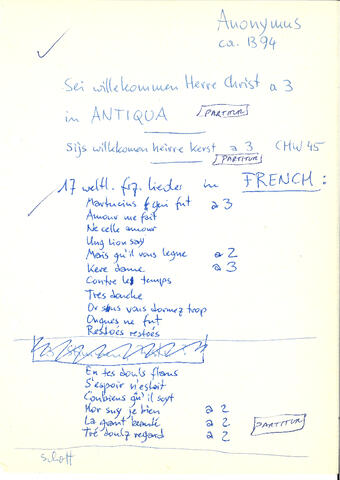 Anonymus
ca. 1394
Sei willekommen Herre Christ a 3
in ANTIQUA PARTITUR
Sijs willekomen heirre kerst a 3 CMW 45
PARTITUR
17 weltl. frz. Lieder in FRENCH:
Martucius qui fut a 3
Amour me fait
Ne celle amour
Ung lion say
Mais qu'il vous legne a 2
Kere dame a 3
Contre le temps
Tres douche
Or sus vous dormez trop
Onques ne fut
Restoés restoés
En tes doulz flans
S'espoir n'estoit
Combiens qu'il soyt
Mor suy je bien a 2
La grant beauté a 2 PARTITUR
Tré doulz regard a 2
Schott